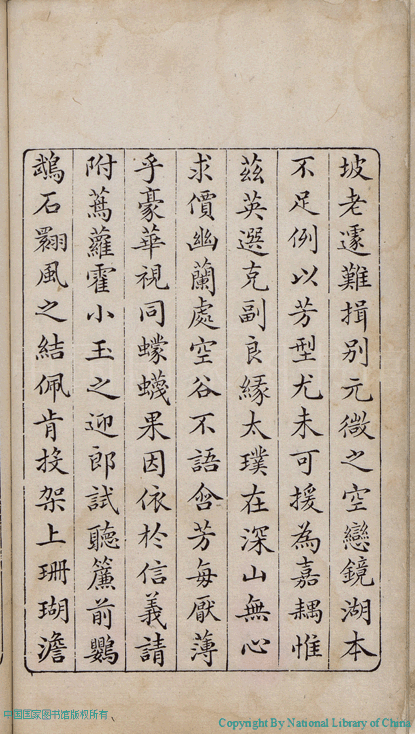 坡老遽難揖別元微之空戀鏡湖本
不足例以芳型尤未可援為嘉耦惟
茲英選克副良緣太璞在深山無心
求價幽蘭處空谷不語含芳每厭薄
乎豪華視同蠓蠛果因依於信義請
附蔦蘿霍小玉之迎郎試聽簾前鸚
鵡石翾風之結佩肯投架上珊瑚澹
中国国家图书馆版权所有
Copyright By National Library of China